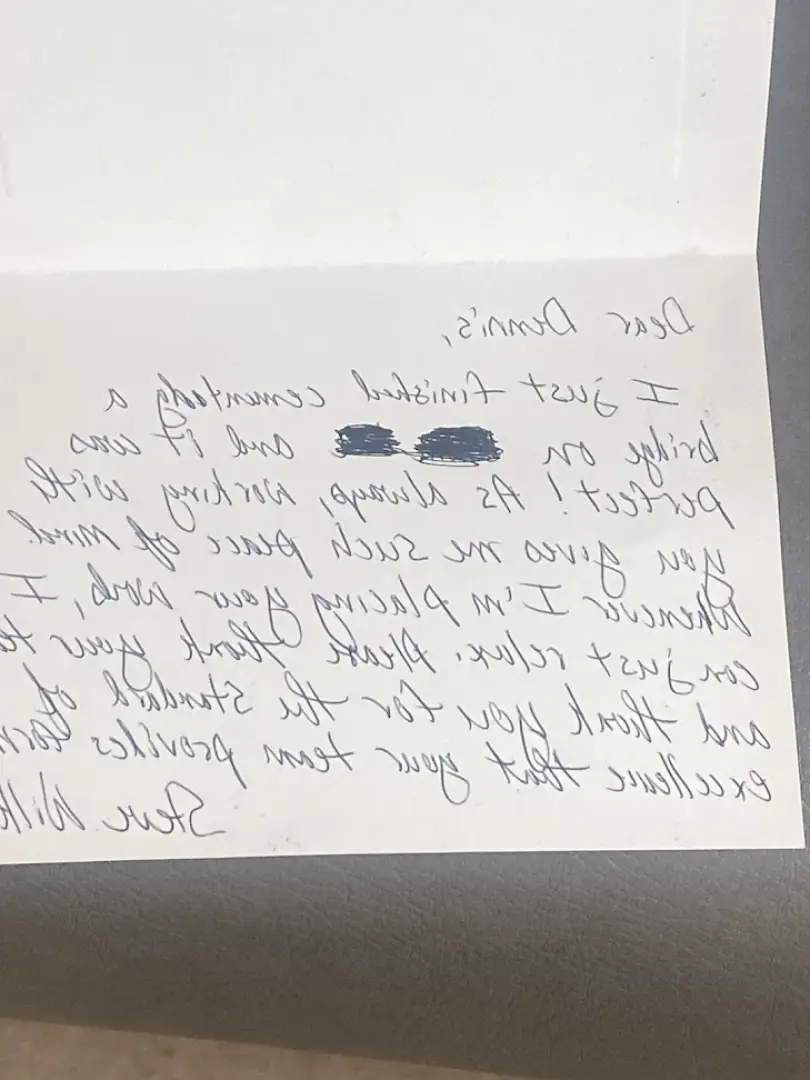 Dear Dennis,
I just finished cementing a
bridge on and it was
perfect! As always, working with
you gives me such peace of mind.
Whenever I'm placing your work, I
can just relax. Please thank your
and thank you for the standard of
excellence that your team provides
Steve